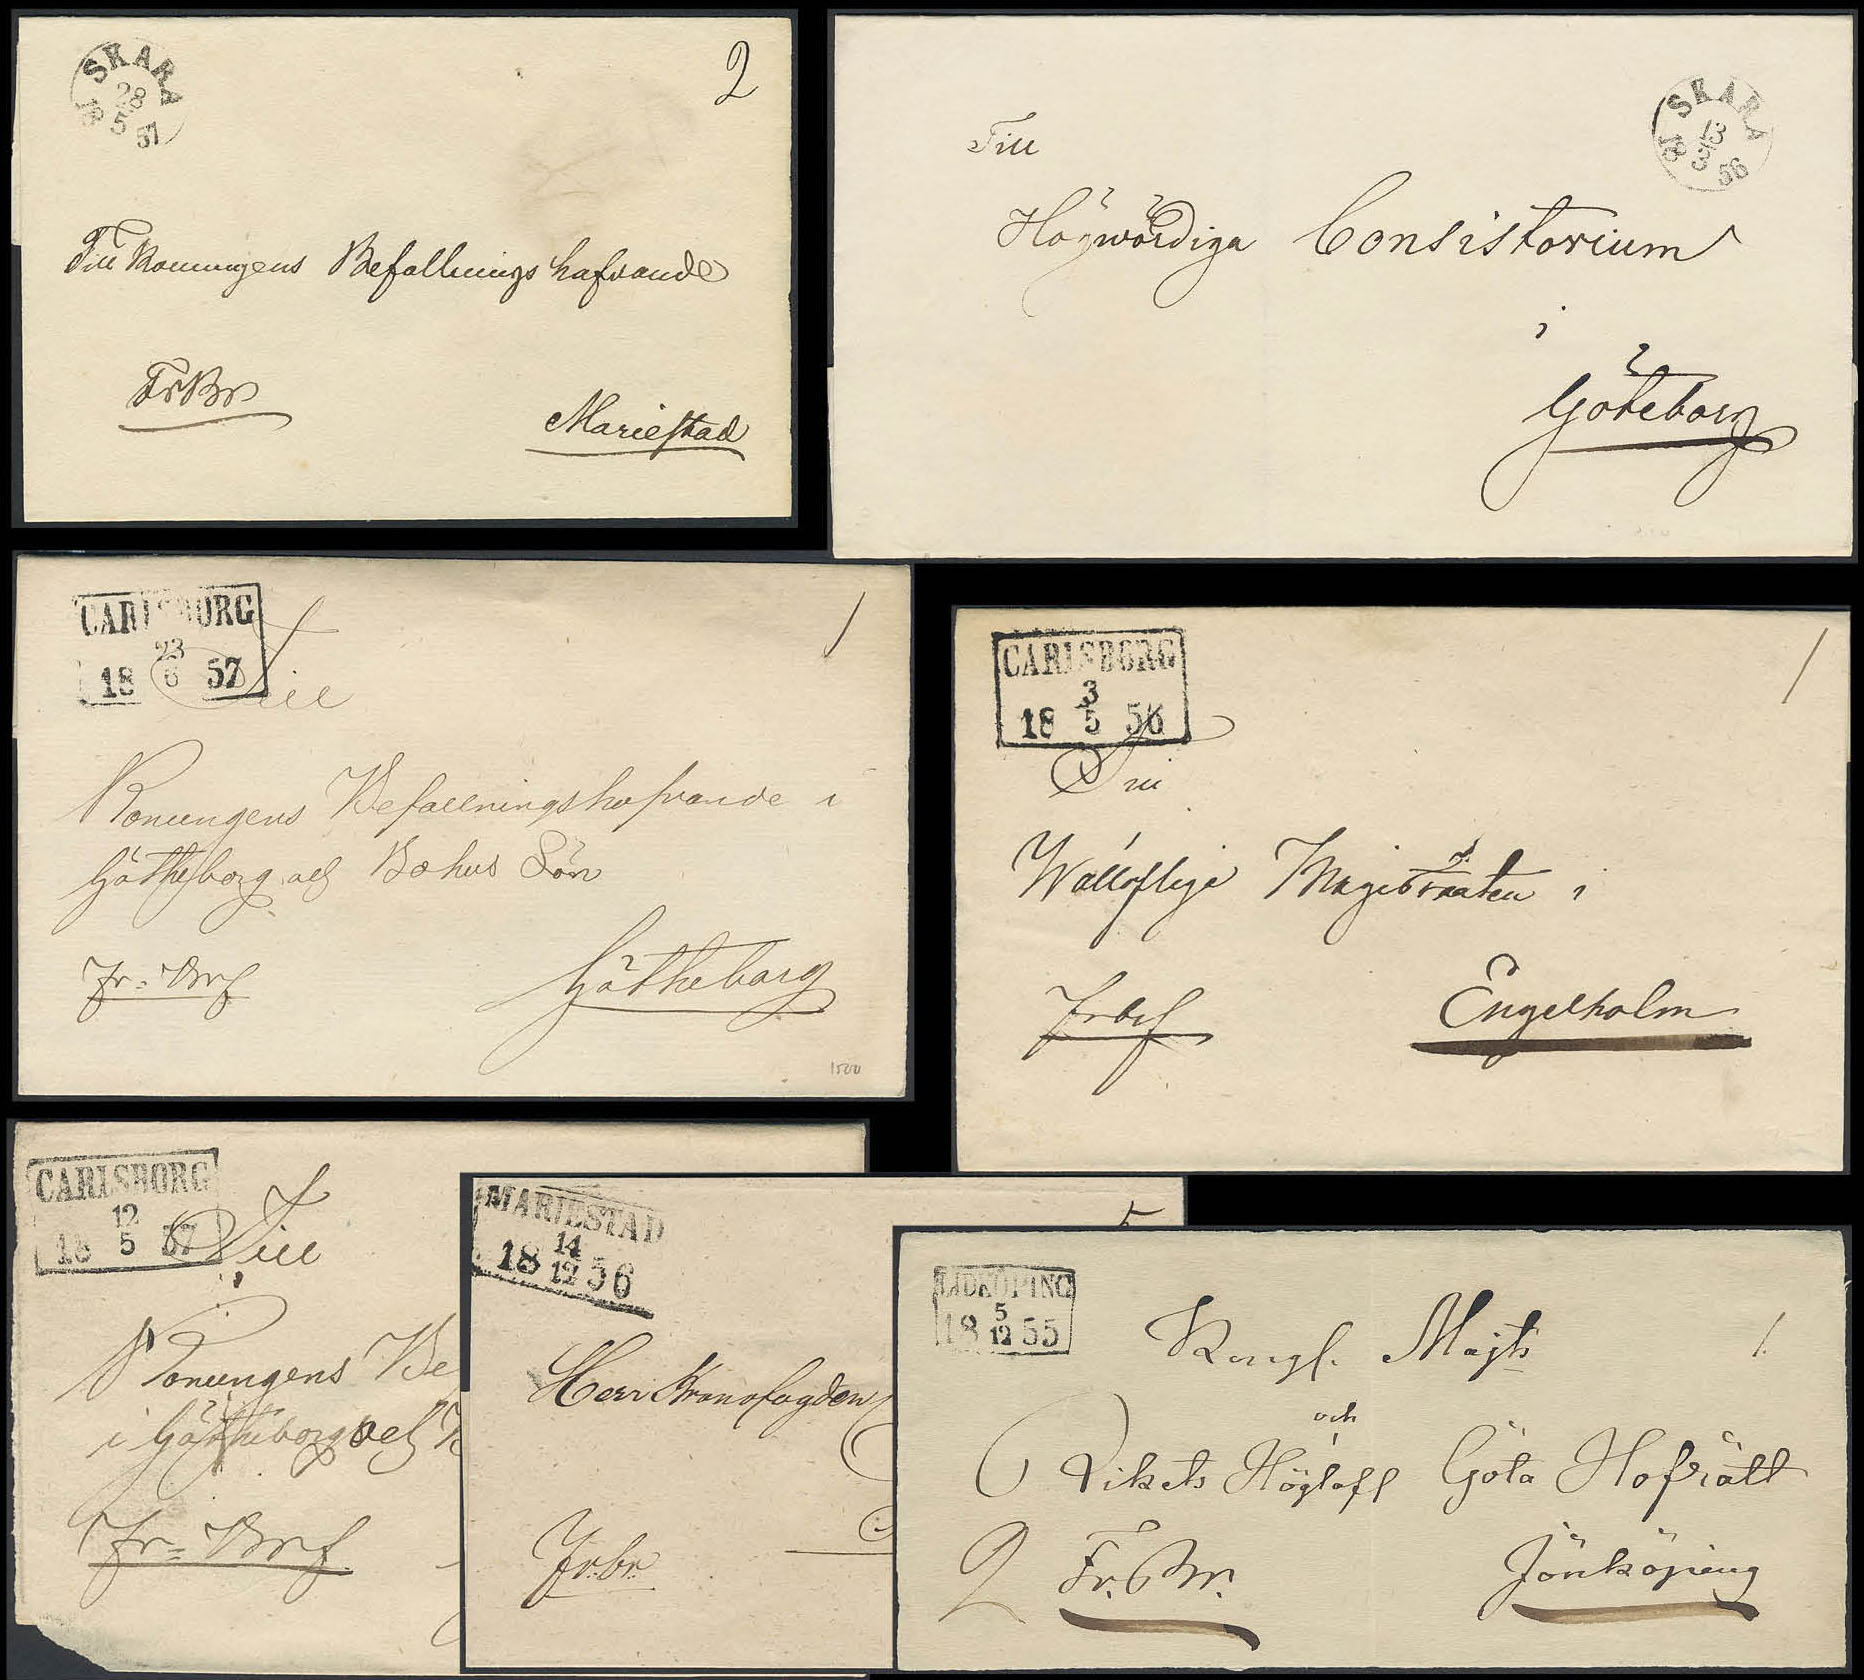 SKARA
28
5
18 57
2
Till Konungens Befallningshafvande
FrBr
Mariestad
SKARA
13
3
18 58
Till
Högwördiga Consistorium
i
Göteborg
CARLSBORG
23
18 6 57
1
Till
Konungens Befallningshafvande i
Götheborg och Bohus Län
Fr=Bref
Götheborg
1500
CARLSBORG
3
18 5 56
1
Till
Wällofliga Magistraten i
Frbref
Engelholm
CARLSBORG
12
18 5 57
Till
Konungens Be
i Götheborg och
Fr=Bref
MARIESTAD
14
18 12 56
5
Herr Kronofogden
Fr:br:
LIDKÖPING
5
18 12 55
Kongl. Majts
1.
och
Rikets Höglofl Göta Hofrätt
2 Fr. Br.
Jönköping